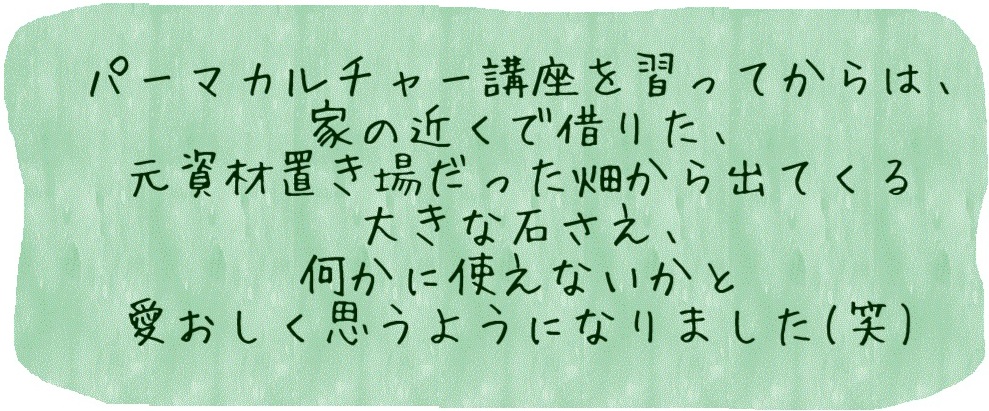 パーマカルチャー講座を習ってからは、
家の近くで借りた、
元資材置き場だった畑から出てくる
大きな石さえ、
何かに使えないかと
愛おしく思うようになりました(笑)